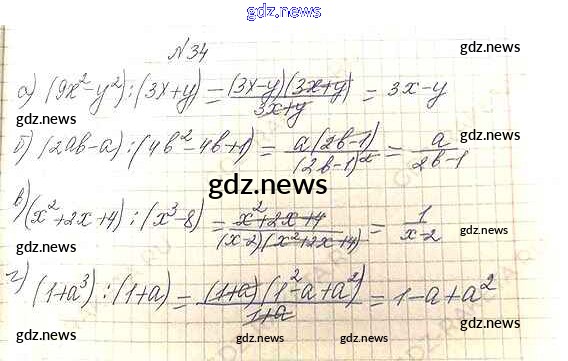 gdz.news
№34
gdz.news
а) (9x²-y²):(3x+y) = (3x-y)(3x+y) / 3x+y = 3x-y
gdz.news
б) (2ab-a):(4b²-4b+1) = a(2b-1) / (2b-1)² = a / 2b-1
gdz.news
gdz.news
в) (x²+2x+4):(x³-8) = x²+2x+4 / (x-2)(x²+2x+4) = 1 / x-2
gdz.news
gdz.news
г) (1+a³):(1+a) = (1+a)(1²-a+a²) / 1+a = 1-a+a²
gdz.news
gdz.news
gdz.news
gdz.news